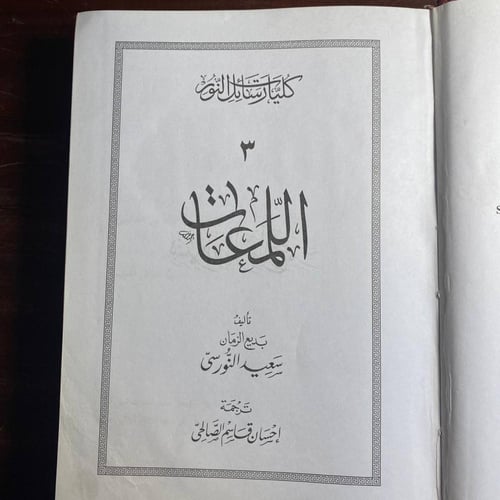 كليات رسائل النور
٣
اللمعات
تأليف
بديع الزمان
سعيد النورسي
ترجمة
إحسان قاسم الصالحي